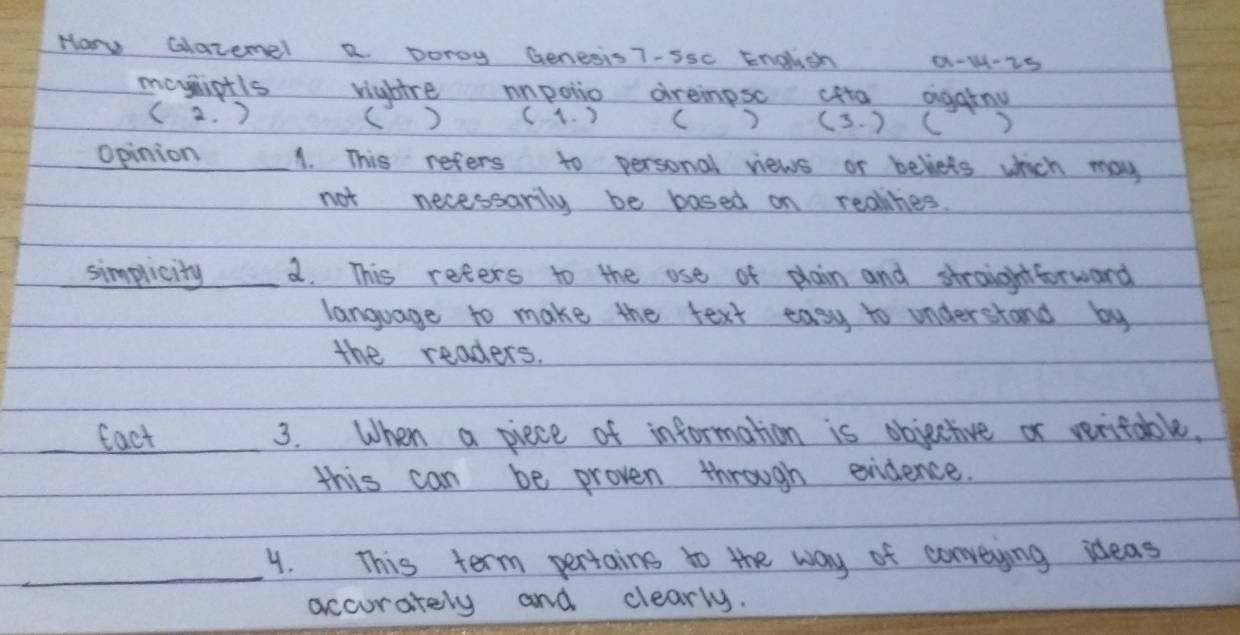 Mary Glazemel R. Doroy Genesis 7-SSC English 9-14-25
mcyiiptls viybtre nnpoiio direinpsc cfta aigqtny
( 2. ) ( ) ( 1. ) ( ) ( 3. ) ( )
Opinion 1. This refers to personal views or beliefs which may
not necessarily be based on realities.
simplicity 2. This refers to the use of plain and straightforward
language to make the text easy to understand by
the readers.
fact 3. When a piece of information is objective or verifable,
this can be proven through evidence.
4. This term pertains to the way of conveying ideas
accurately and clearly.